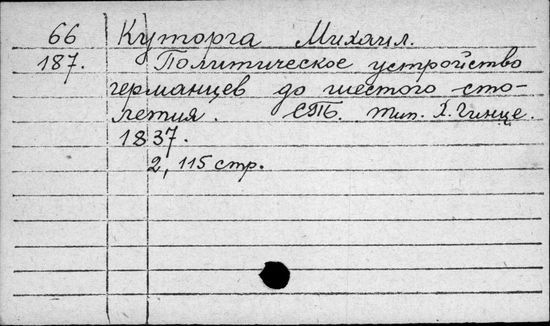 66 Куторга Михаил.
187. Политическое устройство
германцев до шестого сто-
летия. СПб. тип. Х. Гинце.
1837.
2, 115 стр.